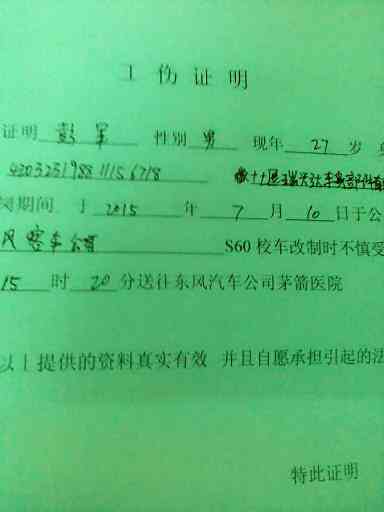 工伤证明
证明 彭军 性别 男 现年 27 岁
十堰瑞兴达
期间 于 2015 年 7 月 10 日于公
风客车公司 S60校车改制时不慎受
15 时 20 分送往东风汽车公司茅箭医院
以上提供的资料真实有效 并且自愿承担引起的法
特此证明